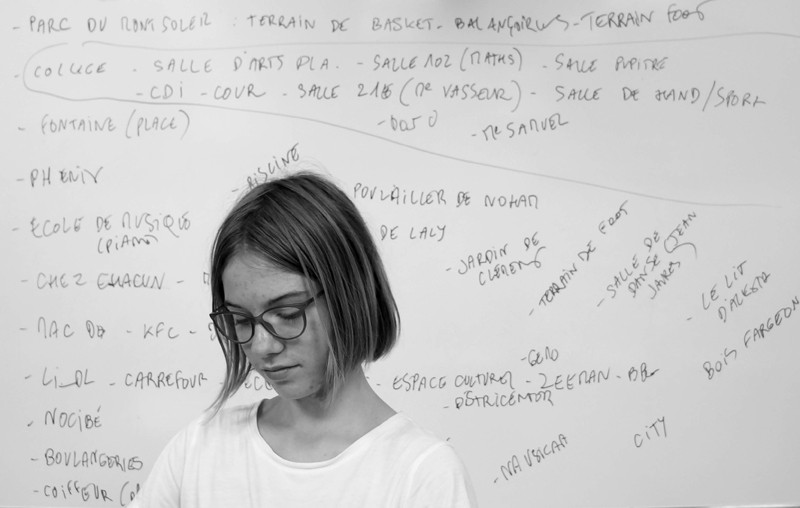 - PARC DU MONTSOLER : TERRAIN DE BASKET - BALANÇOIRES - TERRAIN FOOT
- COLLEGE - SALLE D'ARTS PLA. - SALLE 102 (MATHS) - SALLE PUPITRE
- CDI - COUR - SALLE 216 (Mr VASSEUR) - SALLE DE HAND/SPORT
- FONTAINE (PLACE) - DOJO - Mr SAMUEL
- PHENIX - PISCINE
POULAILLER DE NOHAM
- ÉCOLE DE MUSIQUE DE LALY
(PIANO) - JARDIN DE CLEMENT - TERRAIN DE FOOT - SALLE DE DANSE (JEAN JAURES)
- CHEZ CHACUN - LE LIT D'ALEXIA
- MAC DO - KFC
BOIS FARGEON
- GEMO
- LIDL - CARREFOUR - ESPACE CULTUREL - ZEEMAN
- DISTRICENTER
- NOCIBÉ
CITY
- BOULANGERIES - NAUSICAA
- COIFFEUR